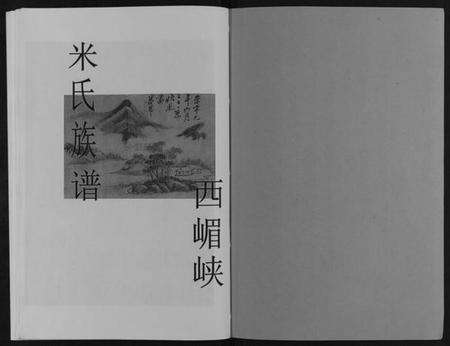 米氏族谱
西嵋峡